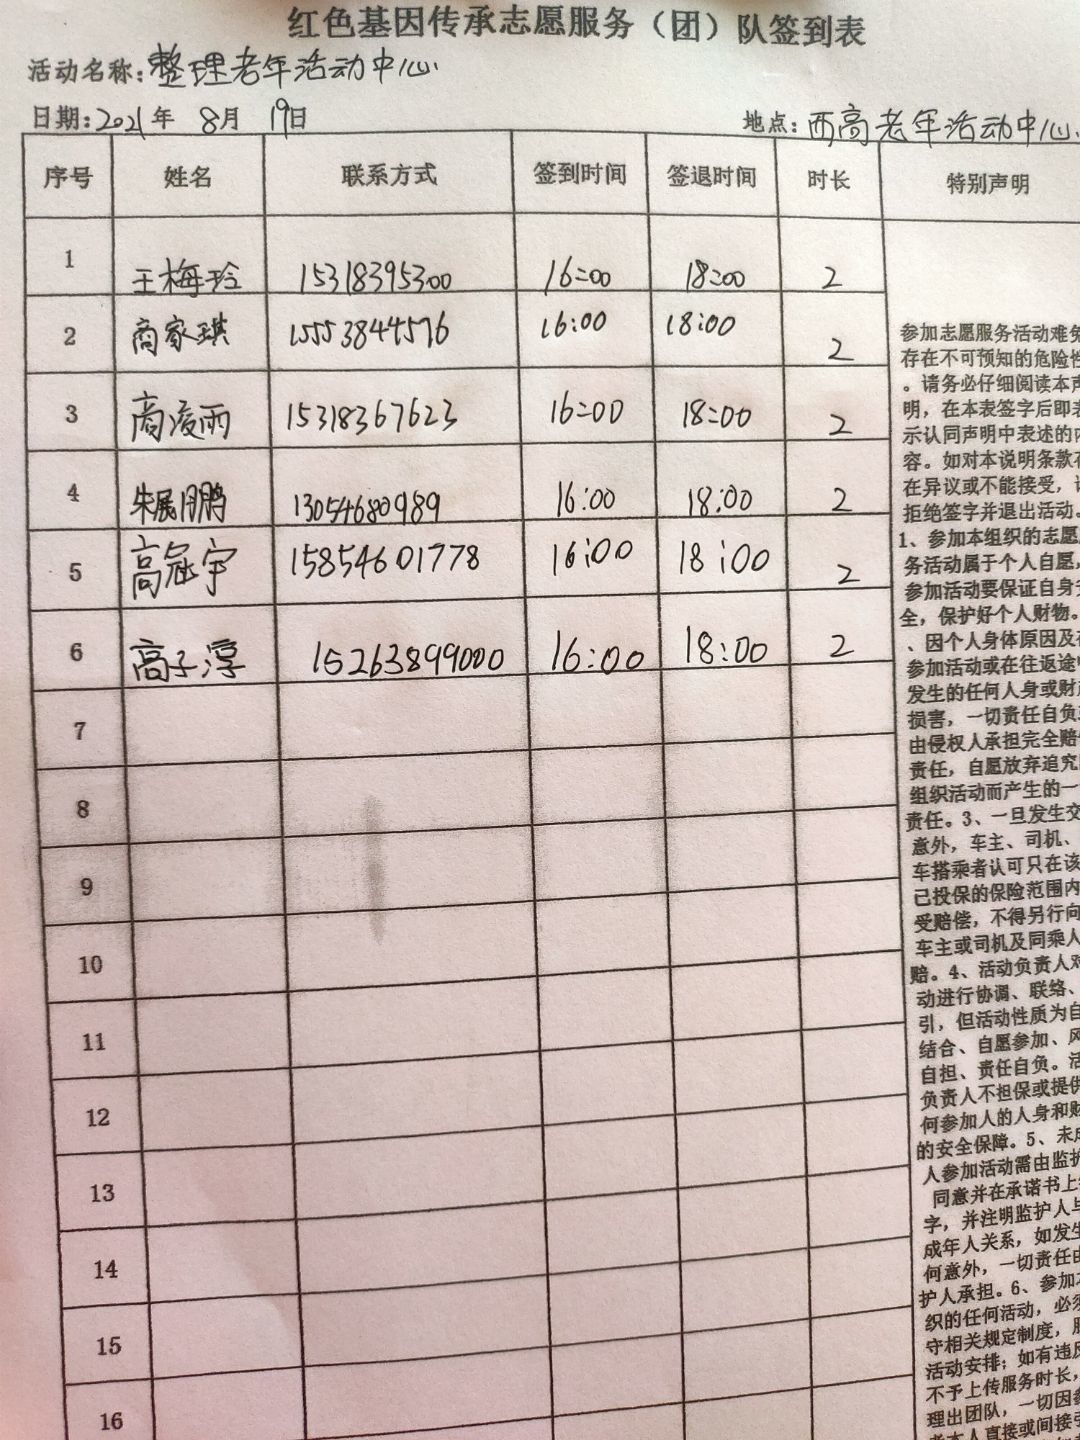 红色基因传承志愿服务（团）队签到表
活动名称：整理老年活动中心
日期：2021年 8月 19日 地点：西高老年活动中心
序号 姓名 联系方式 签到时间 签退时间 时长 特别声明
1 王梅玲 15318395300 16:00 18:00 2
2 商家琪 15553844576 16:00 18:00 2
3 高凌雨 15318367623 16:00 18:00 2
4 朱展鹏 13054680989 16:00 18:00 2
5 高宇 15854601778 16:00 18:00 2
6 高子淳 15263899000 16:00 18:00 2
7
8
9
10
11
12
13
14
15
16
参加志愿服务活动难免
存在不可预知的危险性
。请务必仔细阅读本声
明，在本表签字后即表
示认同声明中表述的内
容。如对本说明条款存
在异议或不能接受，请
拒绝签字并退出活动。
1、参加本组织的志愿服
务活动属于个人自愿，
参加活动要保证自身安
全，保护好个人财物。
、因个人身体原因及在
参加活动或在往返途中
发生的任何人身或财产
损害，一切责任自负或
由侵权人承担完全赔偿
责任，自愿放弃追究
组织活动而产生的一
责任。3、一旦发生交
意外，车主、司机、
车搭乘者认可只在该
已投保的保险范围内
受赔偿，不得另行向
车主或司机及同乘人
赔。4、活动负责人对
动进行协调、联络、
引，但活动性质为自
结合、自愿参加、风
自担、责任自负。活
负责人不担保或提供
何参加人的人身和财
的安全保障。5、未成
人参加活动需由监护
同意并在承诺书上签
字，并注明监护人与
成年人关系，如发生
何意外，一切责任由
护人承担。6、参加本
织的任何活动，必须
守相关规定制度，服
活动安排；如有违反
不予上传服务时长，
理出团队，一切因参
者本人直接或间接引